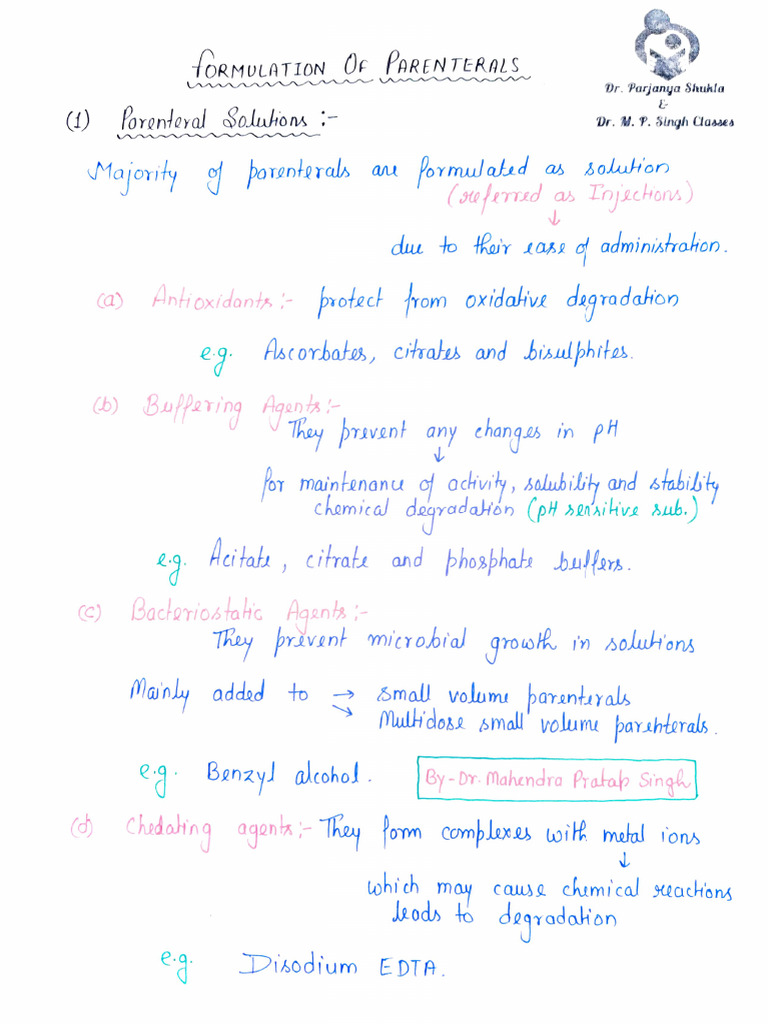 FORMULATION OF PARENTERALS
Dr. Parjanya Shukla
&
Dr. M. P. Singh Classes
(1) Parenteral Solutions :-
Majority of parenterals are formulated as solution
(referred as Injections)
↓
due to their ease of administration.
(a) Antioxidants :- protect from oxidative degradation
e.g. Ascorbates, citrates and bisulphites.
(b) Buffering Agents :-
They prevent any changes in pH
↓
for maintenance of activity, solubility and stability
chemical degradation (pH sensitive sub.)
e.g. Acitate, citrate and phosphate buffers.
(c) Bacteriostatic Agents :-
They prevent microbial growth in solutions
Mainly added to → small volume parenterals
↘ Multidose small volume parenterals.
e.g. Benzyl alcohol.
By - Dr. Mahendra Pratap Singh
(d) Chedating agents :- They form complexes with metal ions
↓
which may cause chemical reactions
leads to degradation
e.g. Disodium EDTA.